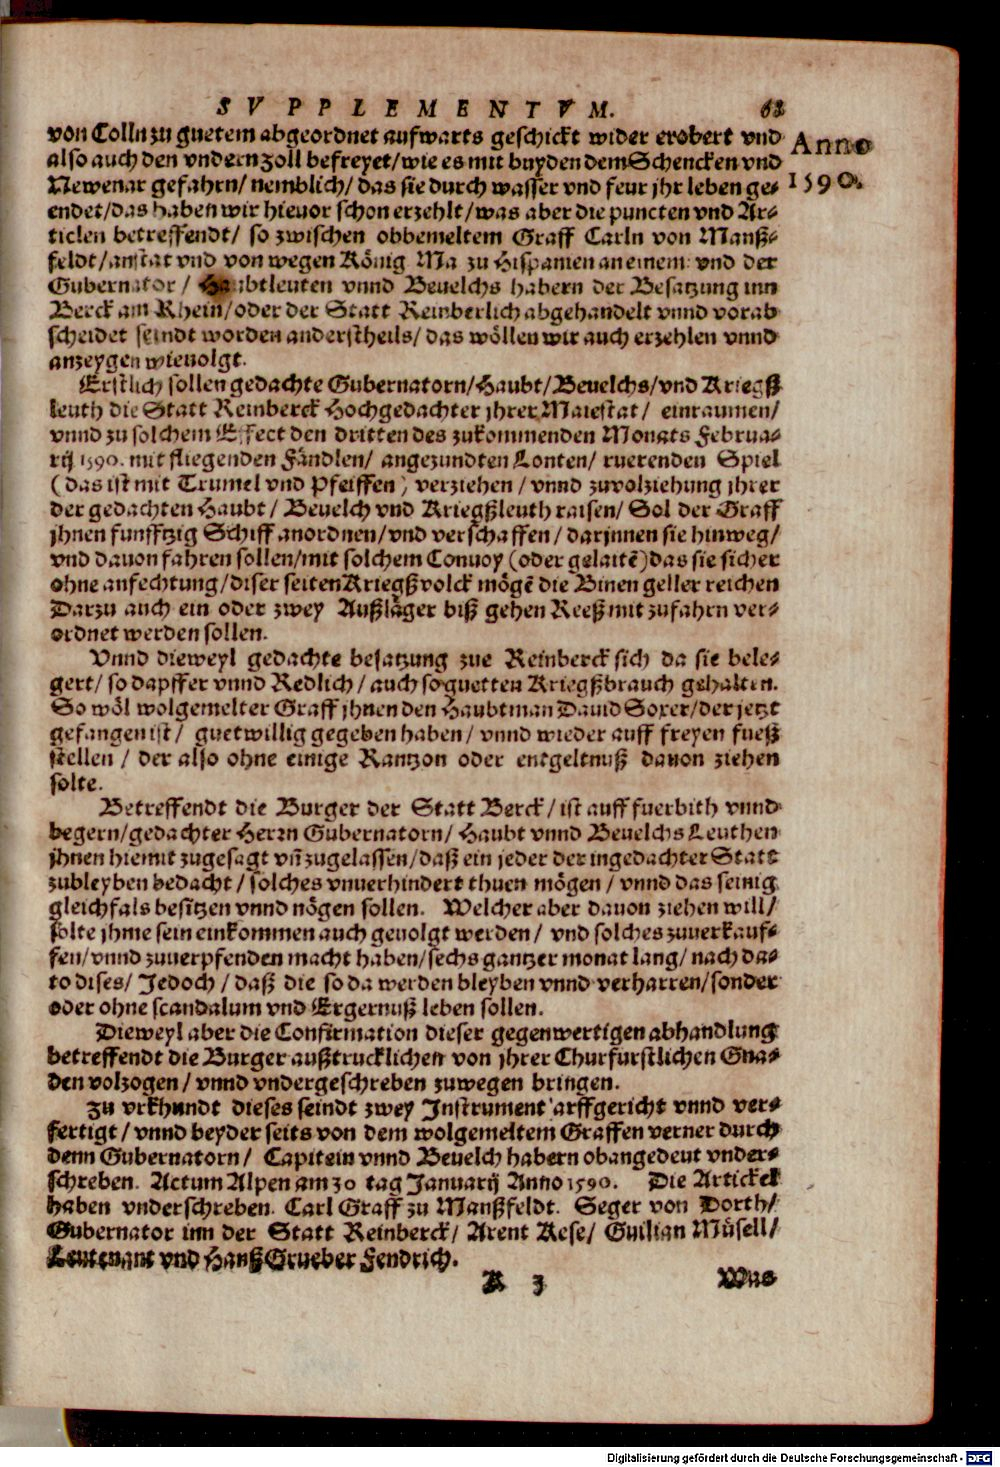 SVPPLEMENTVM. 62
von Colln zu guetem abgeordnet aufwarts geschickt wider erobert vnd
Anno
also auch den vndern zoll befreyet/ wie es mit buyden dem Schencken vnd
Newenar gefahrn/ nemblich/ das sie durch wasser vnd feur jhr leben ge-
1590.
endet/ das haben wir hieuor schon erzehlt/ was aber die puncten vnd Ar-
ticlen betreffendt/ so zwischen obbemeltem Graff Carln von Manß-
feldt/ anstat vnd von wegen König Ma zu Hispanien an einem: vnd der
Gubernator/ Haubtleuten vnnd Beuelchs habern der Besatzung inn
Berck am Rhein/ oder der Statt Reinberlich abgehandelt vnnd vorab
scheidet seindt worden anderstheils/ das wöllen wir auch erzehlen vnnd
anzeygen wieuolgt.
Erstlich sollen gedachte Gubernatorn/ Haubt/ Beuelchs/ vnd Kriegß
leuth die Statt Reinberck Hochgedachter jhrer Maiestat/ einraumen/
vnnd zu solchem Effect den dritten des zukommenden Monats Februa-
rij 1590. mit fliegenden Fändlen/ angezundten Lonten/ ruerenden Spiel
(das ist mit Trumel vnd Pfeiffen) verziehen/ vnnd zuvolziehung jhrer
der gedachten Haubt/ Beuelch vnd Kriegßleuth raisen/ Sol der Graff
jhnen funfftzig Schiff anordnen/ vnd verschaffen/ darinnen sie hinweg/
vnd dauon fahren sollen/ mit solchem Conuoy (oder gelaitē) das sie sicher
ohne anfechtung/ diser seiten Kriegßvolck mögē die Binen geller reichen
Darzu auch ein oder zwey Außläger biß gehen Reeß mit zufahrn ver-
ordnet werden sollen.
Vnnd dieweyl gedachte besatzung zue Reinberck sich da sie bele-
gert/ so dapffer vnnd Redlich/ auch so guetten Kriegßbrauch gehalten.
So wöl wolgemelter Graff jhnen den Haubtman Dauid Soxer/ der jetzt
gefangen ist/ guetwillig gegeben haben/ vnnd wieder auff freyen fueß
stellen/ der also ohne einige Rantzon oder entgeltnuß dauon ziehen
solte.
Betreffendt die Burger der Statt Berck/ ist auff fuerbith vnnd
begern/ gedachter Herrn Gubernatorn/ Haubt vnnd Beuelchs Leuthen
jhnen hiemit zugesagt vñ zugelassen/ daß ein jeder der in gedachter Statt
zubleyben bedacht/ solches vnuerhindert thuen mögen/ vnnd das seinig
gleichfals besitzen vnnd nögen sollen. Welcher aber dauon ziehen will/
solte jhme sein einkommen auch geuolgt werden/ vnd solches zuuerkauf-
fen/ vnnd zuuerpfenden macht haben/ sechs gantzer monat lang/ nach da-
to dises/ Jedoch/ daß die so da werden bleyben vnnd verharren/ sonder
oder ohne scandalum vnd Ergernuß leben sollen.
Dieweyl aber die Confirmation dieser gegenwertigen abhandlung
betreffendt die Burger außtrucklichen von jhrer Churfurstlichen Gna-
den volzogen/ vnnd vndergeschreben zuwegen bringen.
Zu vrkhundt dieses seindt zwey Instrument arffgericht vnnd ver-
fertigt/ vnnd beyder seits von dem wolgemeltem Graffen verner durch
denn Gubernatorn/ Capitein vnnd Beuelch habern obangedeut vnder-
schreben. Actum Alpen am 30 tag Januarij Anno 1590. Die Artickel
haben vnderschreben. Carl Graff zu Manßfeldt. Seger von Dorth/
Gubernator inn der Statt Reinberck/ Arent Kese/ Guilian Müsell/
Leutenant vnd Hanß Grueber Fendrich.
K 3 Was
Digitalisierung gefördert durch die Deutsche Forschungsgemeinschaft - DFG